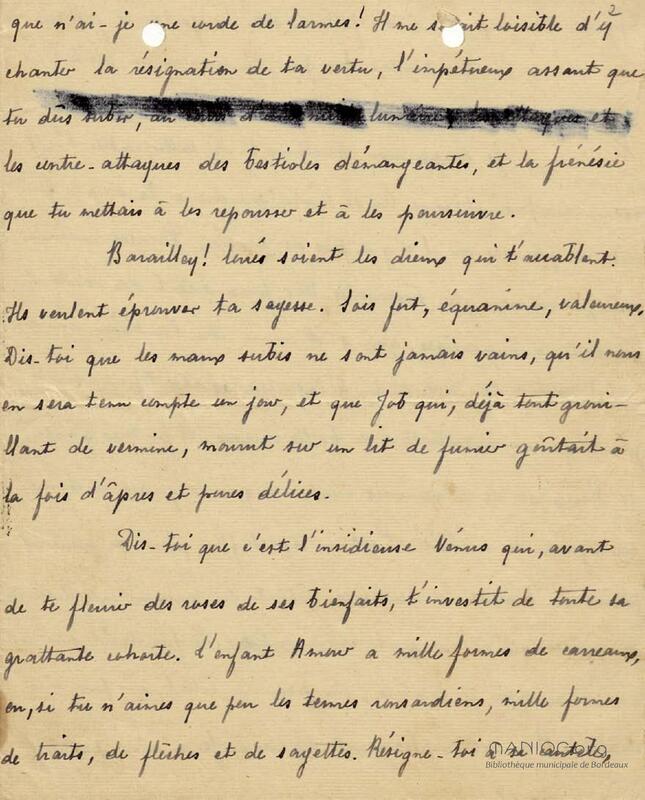 2
que n'ai-je une corde de larmes! Il me serait loisible d'y
chanter la résignation de ta vertu, l'impétueux assaut que
tu dus subir, au d'une lunaire, les attaques et
les contre-attaques des bestioles démangeantes, et la frénésie
que tu mettais à les repousser et à les poursuivre.
Barailley! loués soient les dieux qui t'accablent.
Ils veulent éprouver ta sagesse. Sois fort, équanime, valeureux,
Dis-toi que les maux subis ne sont jamais vains, qu'il nous
en sera tenu compte un jour, et que Job qui, déjà tout groui-
llant de vermine, mourut sur un lit de fumier goûtait à
la fois d'âpres et pures délices.
Dis-toi que c'est l'insidieuse Vénus qui, avant
de te fleurir des roses de ses bienfaits, t'investit de toute sa
grattante cohorte. L'enfant Amour a mille formes de carreaux,
ou, si tu n'aimes que peu les termes ronsardiens, mille formes
de traits, de flèches et de sayettes. Résigne-toi à sa
MANIOC.org
Bibliothèque municipale de Bordeaux